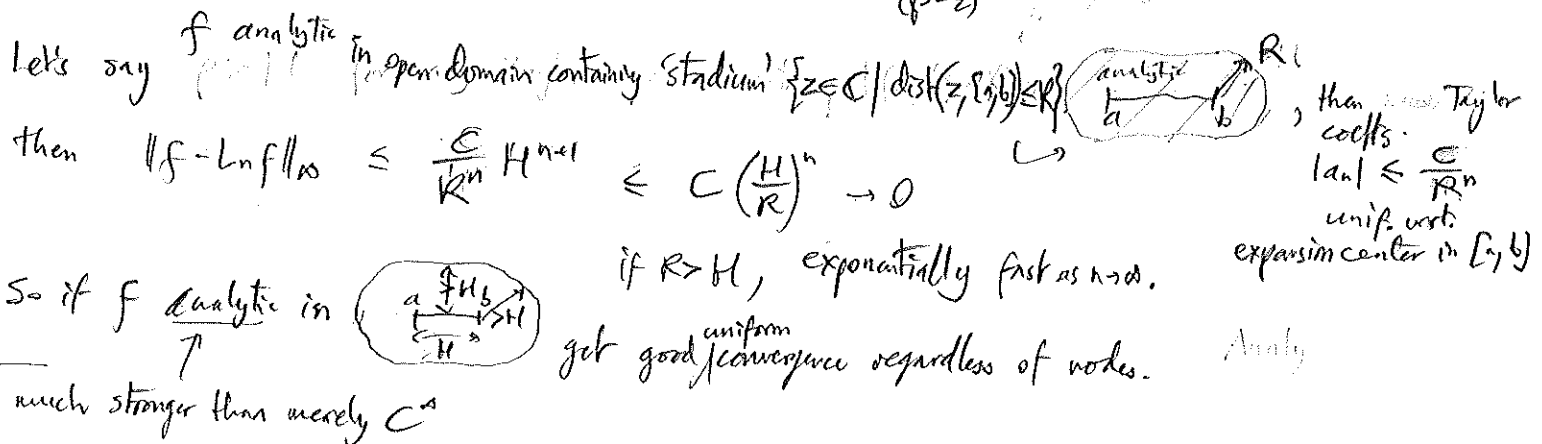 Let's say f analytic in open domain containing 'stadium' {z ∈ ℂ | dist(z, [a,b]) ≤ R}
analytic
a b
R
, then Taylor
coeffs.
|aₙ| ≤ C/Rⁿ
unif. wrt.
expansion center in [a, b]
then ‖f - Lₙf‖∞ ≤ C/Rⁿ Hⁿ⁺¹ ≤ C (H/R)ⁿ → 0
if R > H, exponentially fast as n→∞.
So if f analytic in
a H b >H
H
get good uniform convergence regardless of nodes.
much stronger than merely C^∞